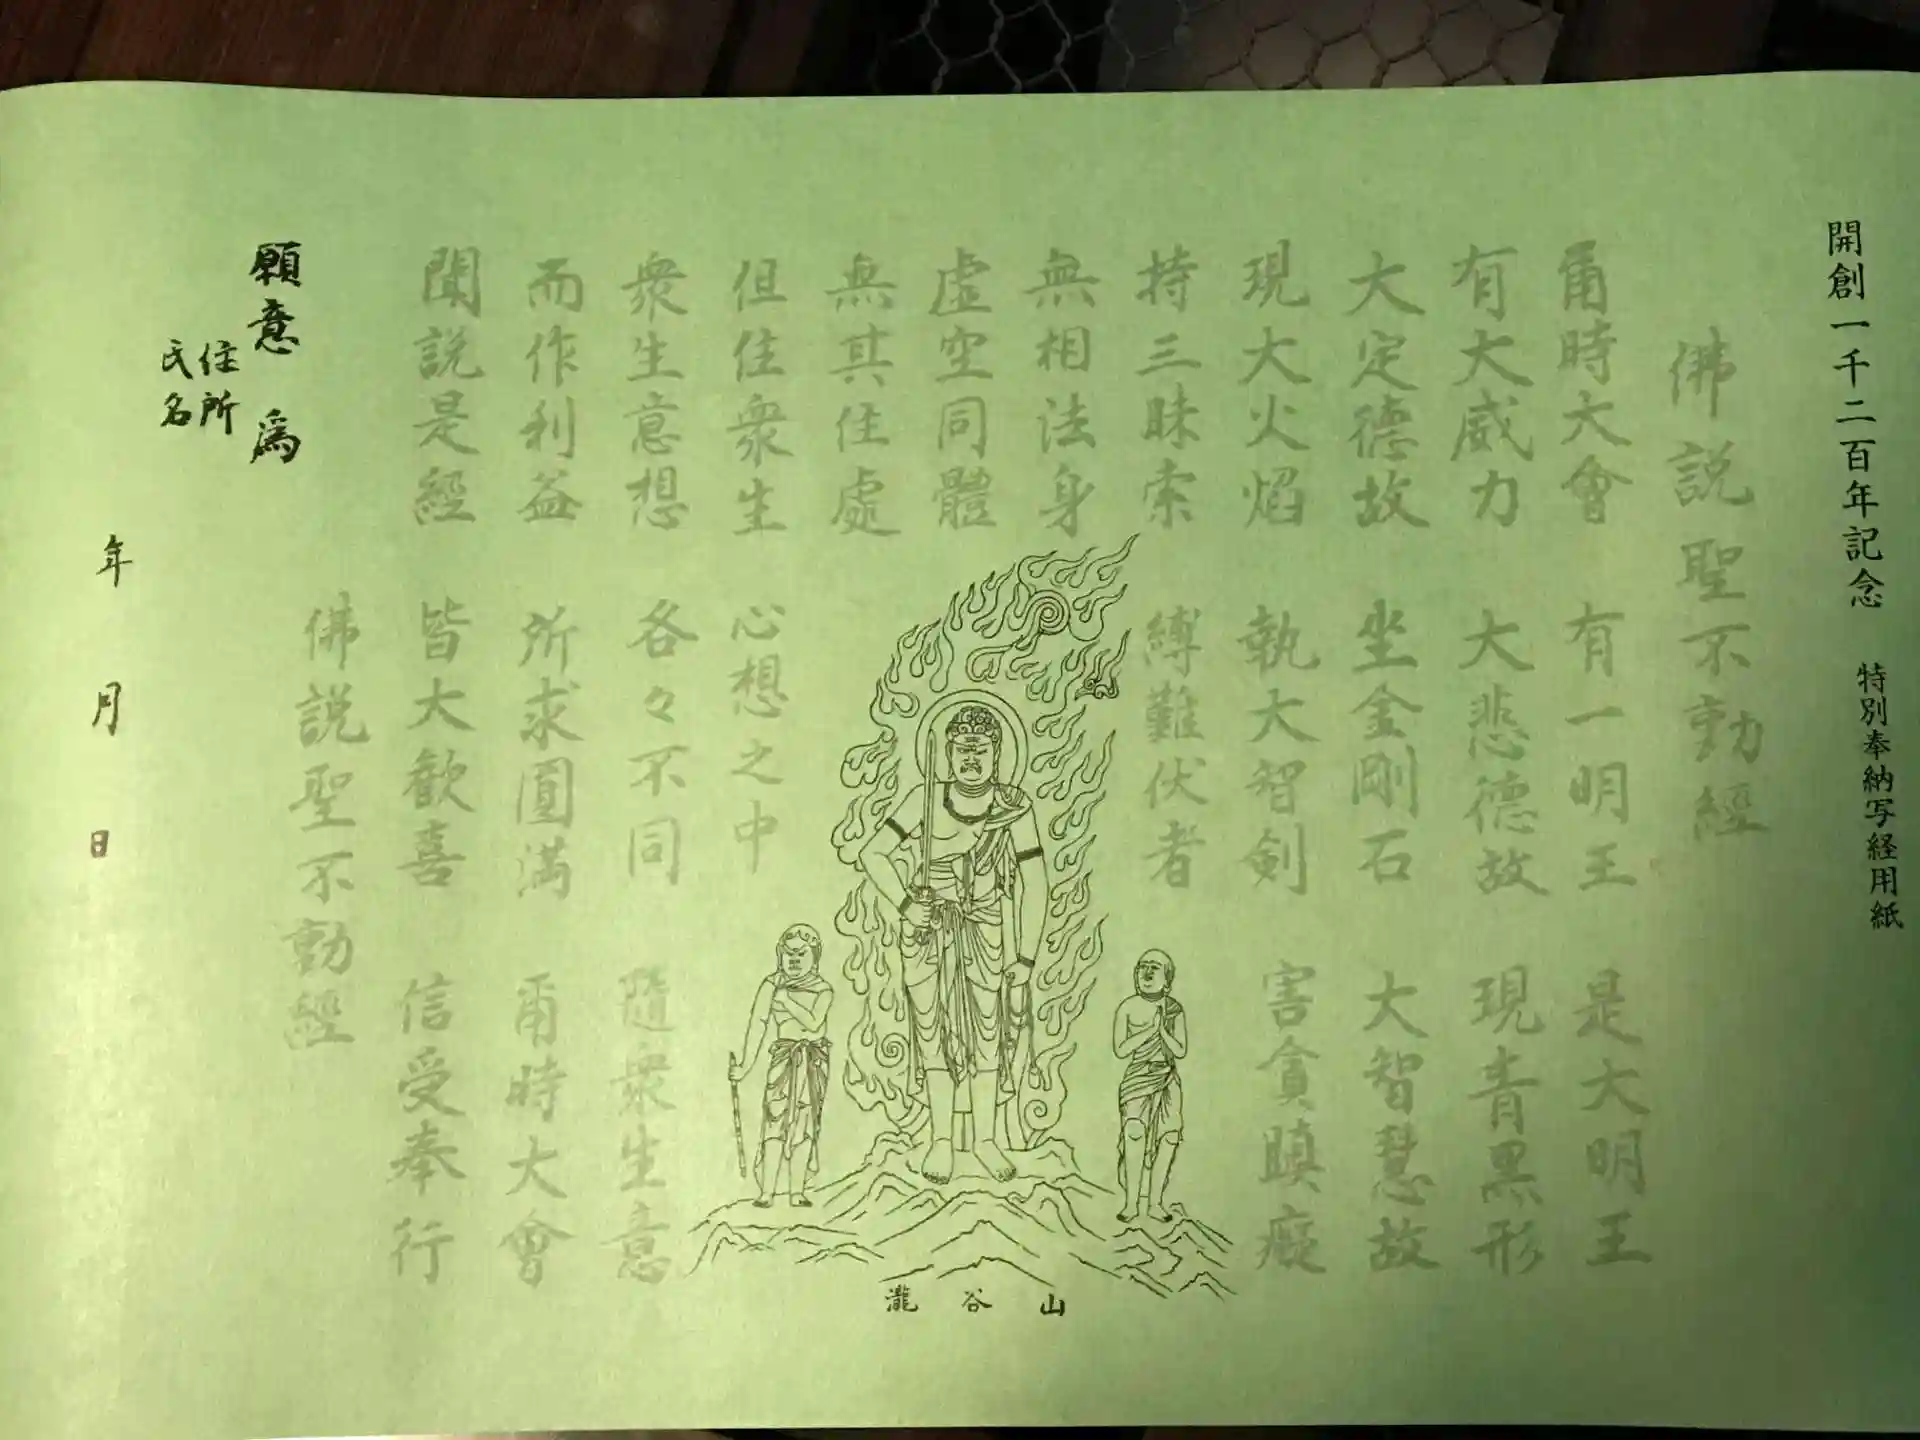 開創一千二百年記念 特別奉納写経用紙
佛説聖不動經
爾時大會 有一明王 是大明王
有大威力 大悲德故 現青黑形
大定德故 坐金剛石 大智慧故
現大火焰 執大智剣 害貪瞋癡
持三昧索 縛難伏者
無相法身
虚空同體
無其住處
但住衆生 心想之中
衆生意想 各々不同 隨衆生意
而作利益 所求圓滿 爾時大會
聞説是經 皆大歓喜 信受奉行
佛説聖不動經
願意 為
住所
氏名
年 月 日
瀧谷山